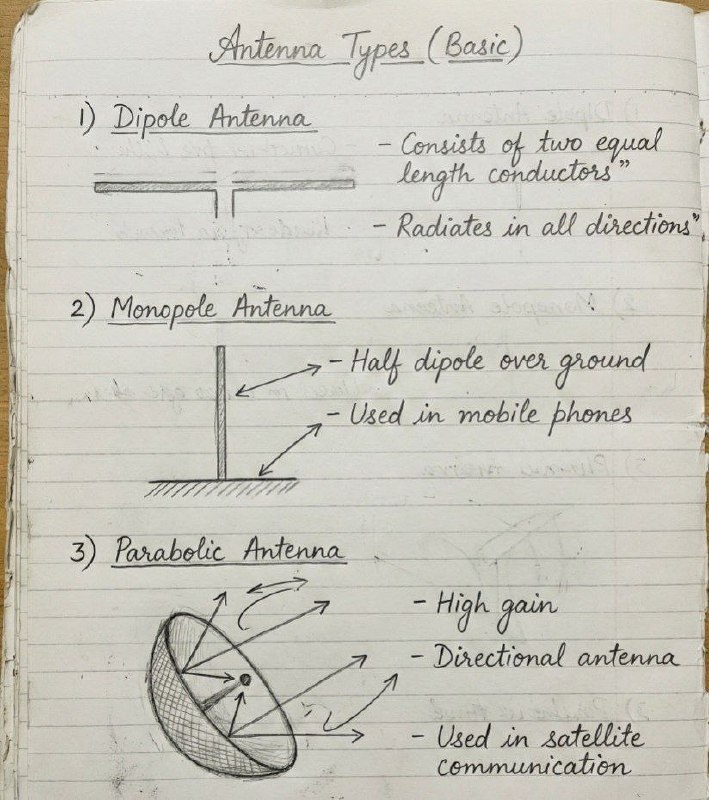 Antenna Types (Basic)
1) Dipole Antenna
- Consists of two equal
length conductors"
- Radiates in all directions"
2) Monopole Antenna
- Half dipole over ground
- Used in mobile phones
3) Parabolic Antenna
- High gain
- Directional antenna
- Used in satellite
communication